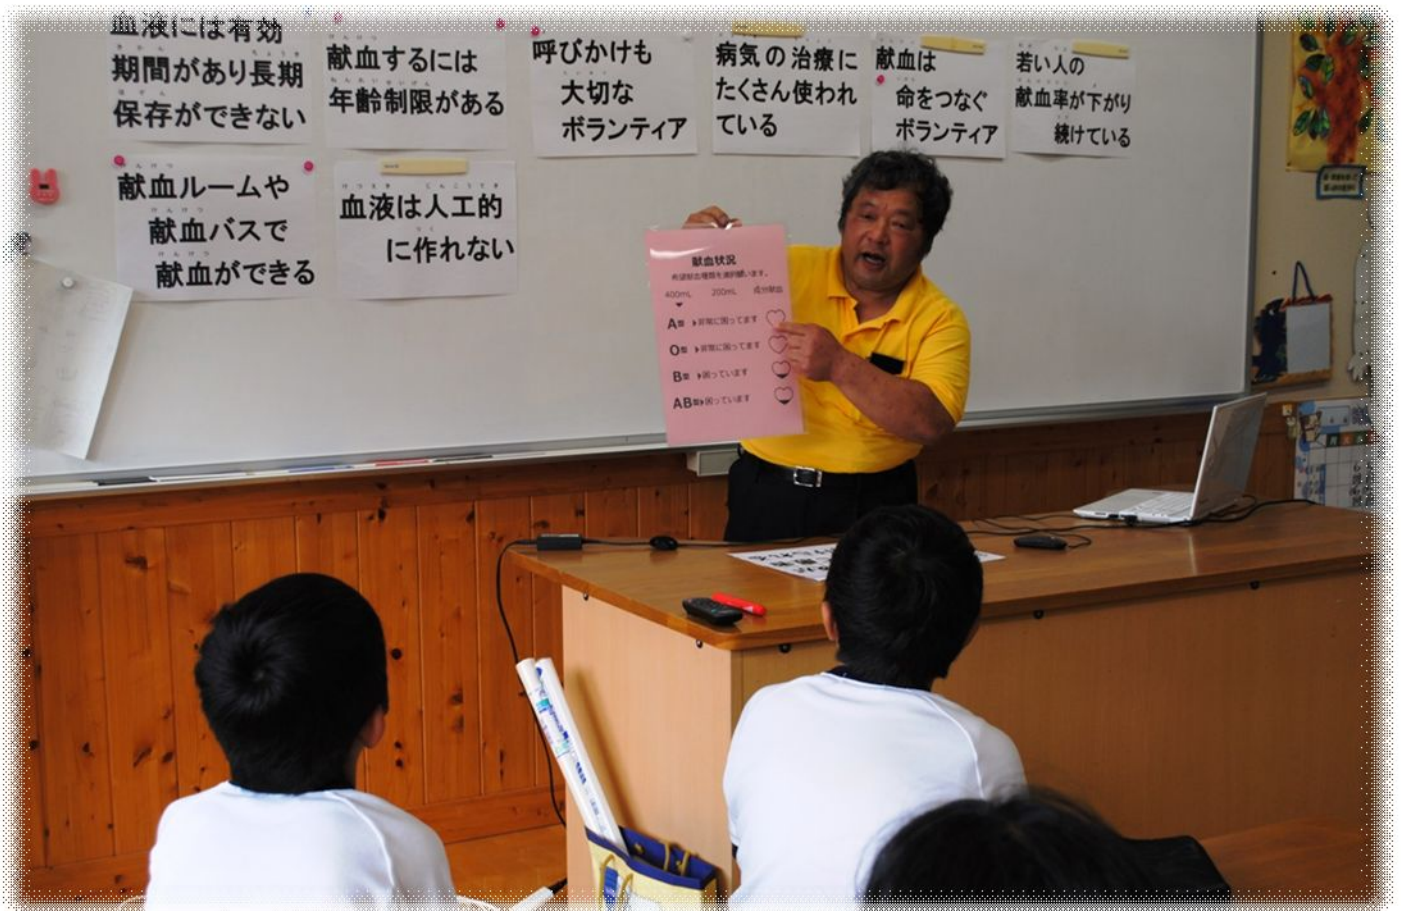 血液には有効
期間があり長期
保存ができない
献血するには
年齢制限がある
呼びかけも
大切な
ボランティア
病気の治療に
たくさん使われ
ている
献血は
命をつなぐ
ボランティア
若い人の
献血率が下がり
続けている
献血ルームや
献血バスで
献血ができる
血液は人工的
に作れない
献血状況
希望献血種類を選択願います。
400mL 200mL 成分献血
A型 非常に困ってます
O型 非常に困ってます
B型 困っています
AB型 困っています